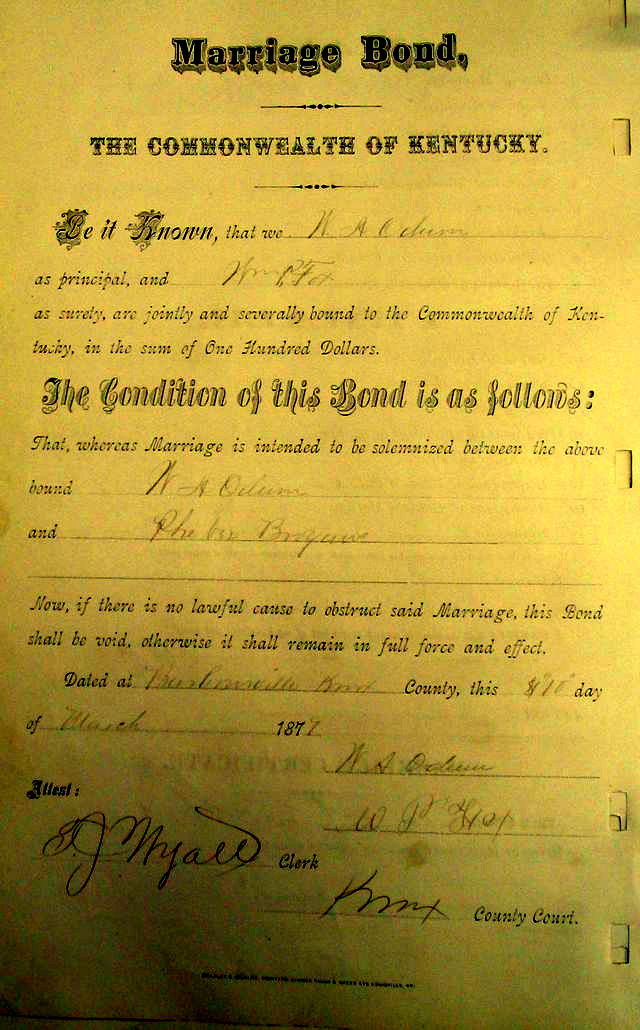 Marriage Bond,
THE COMMONWEALTH OF KENTUCKY.
Be it Known, that we W A Odum
as principal, and Wm P. Fox
as surety, are jointly and severally bound to the Commonwealth of Ken-
tucky, in the sum of One Hundred Dollars.
The Condition of this Bond is as follows:
That, whereas Marriage is intended to be solemnized between the above
bound W A Odum
and
Now, if there is no lawful cause to obstruct said Marriage, this Bond
shall be void, otherwise it shall remain in full force and effect.
Dated at Knox County, this day
of March 187
W A Odum
Attest:
W P Fox
Clerk
Knox County Court.